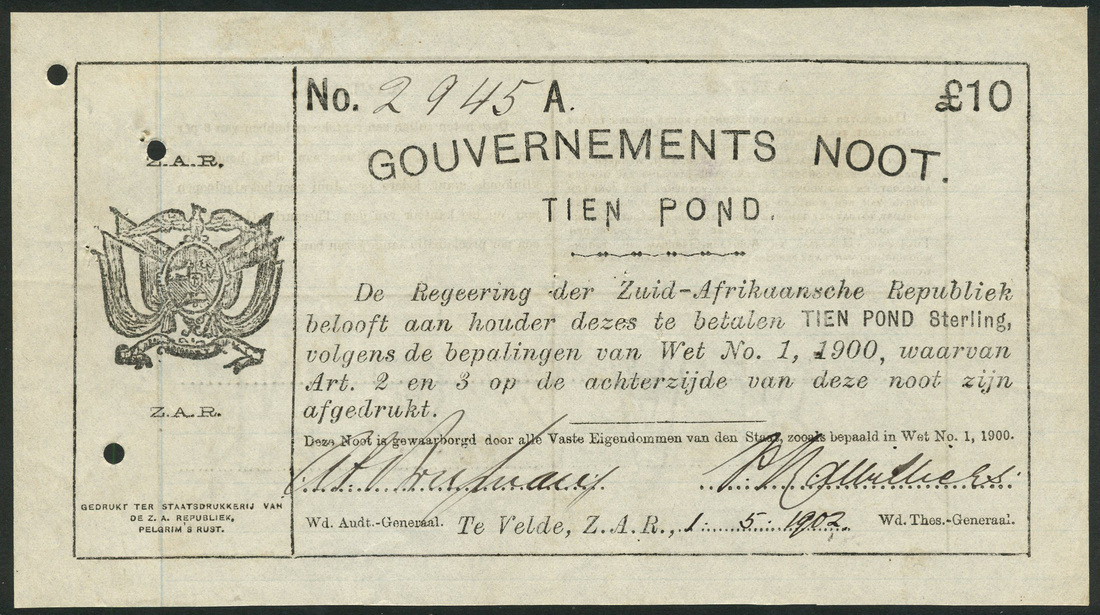 No. 2945 A. £10
GOUVERNEMENTS NOOT.
TIEN POND.
De Regeering der Zuid-Afrikaansche Republiek
belooft aan houder dezes te betalen TIEN POND Sterling,
volgens de bepalingen van Wet No. 1, 1900, waarvan
Art. 2 en 3 op de achterzijde van deze noot zijn
afgedrukt.
Deze Noot is gewaarborgd door alle Vaste Eigendommen van den Staat, zooals bepaald in Wet No. 1, 1900.
Wd. Audt.-Generaal. Te Velde, Z.A.R., 1 : 5 : 1902 Wd. Thes.-Generaal.
Z.A.R.
Z.A.R.
GEDRUKT TER STAATSDRUKKERIJ VAN
DE Z. A. REPUBLIEK,
PELGRIM'S RUST.